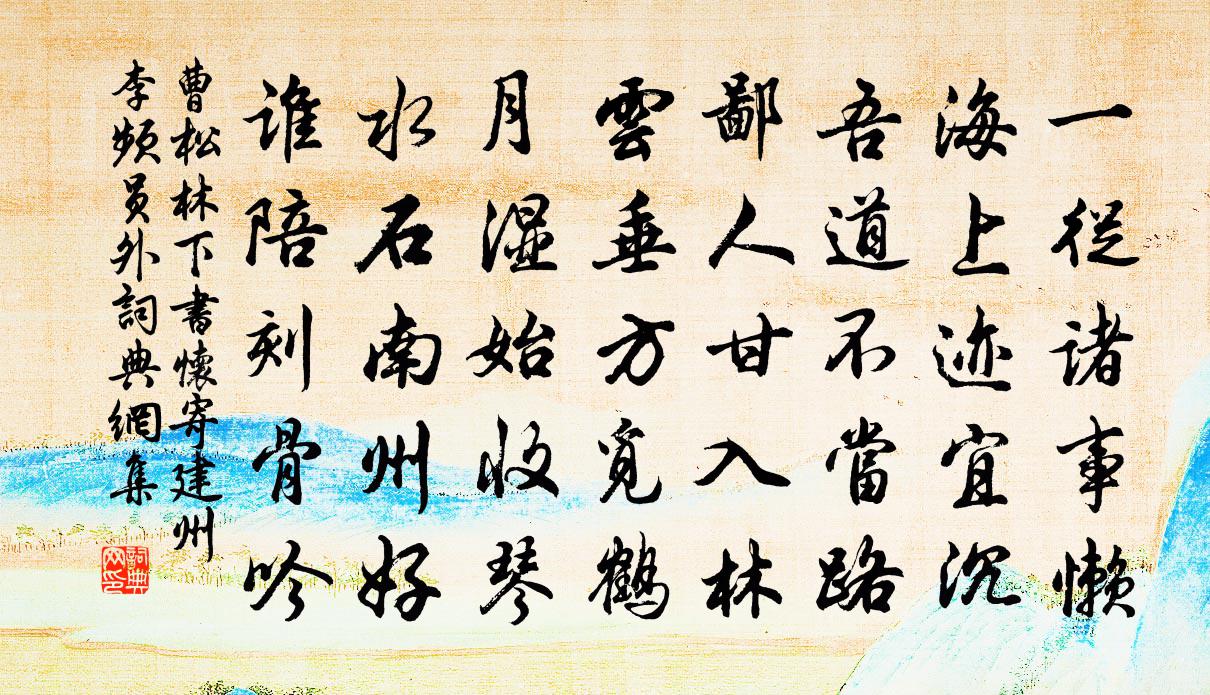 一從诸事懒
海上迹宜沉
吾道不當路
鄙人甘入林
雲垂方觅鶴
月湿始收琴
水石南州好
谁陪刻骨吟
曹松林下書懷寄建州
李频員外詞典網集
詞典
网印